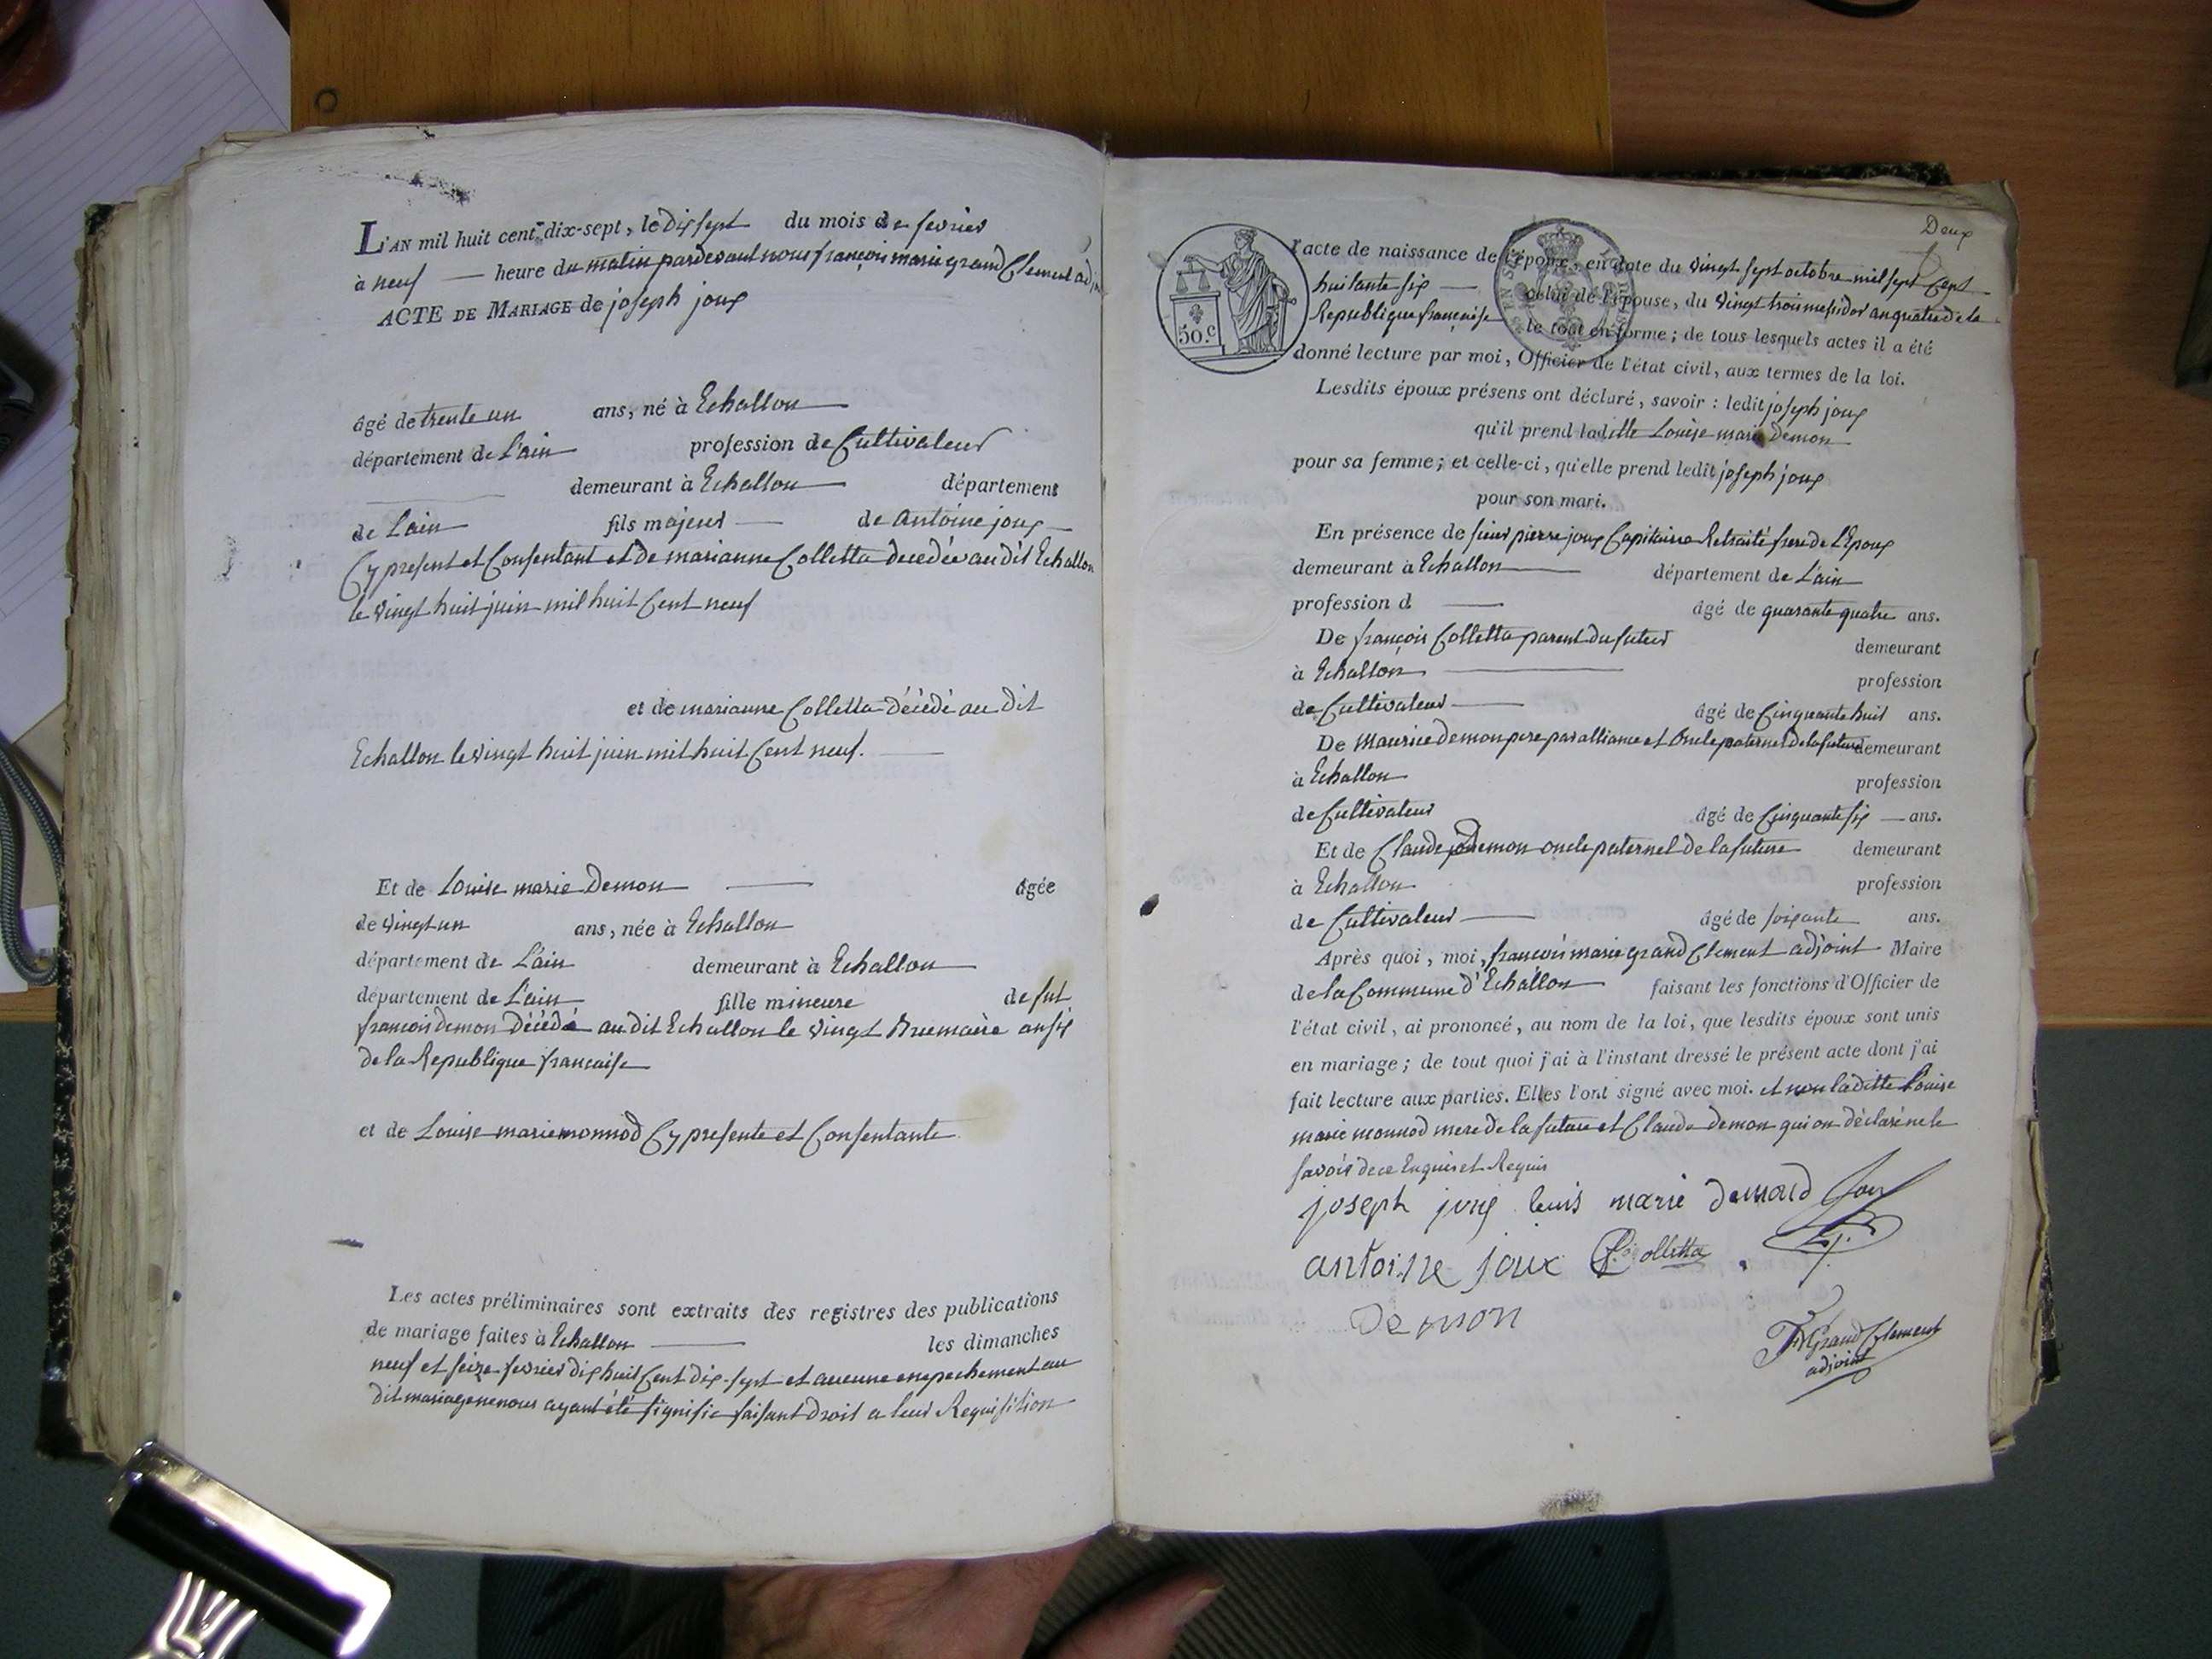 L'AN mil huit cent dix-sept, le dix sept du mois de fevrier
à neuf heure du matin pardevant nous françois marie grand Clement adj
ACTE DE MARIAGE de joseph joux
âgé de trente un ans, né à Echallon
département de L'ain profession de Cultivateur
demeurant à Echallon département
de Lain fils majeur de antoine joux
Cy present et Consentant et de marianne Colletta decedée au dit Echallon
le vingt huit juin mil huit Cent neuf
et de marianne Colletta décédé au dit
Echallon le vingt huit juin mil huit Cent neuf.
Et de Louise marie Demon âgée
de vingt un ans, née à Echallon
département de L'ain demeurant à Echallon
département de L'ain fille mineure de fut
francois demon décédé au dit Echallon le vingt Brumaire an six
de la Republique francaise
et de Louise marie monnod Cy presente et Consentante
Les actes préliminaires sont extraits des registres des publications
de mariage faites à Echallon les dimanches
neuf et seize fevrier dix huit Cent dix-sept et aucune empechement au
dit mariage ne nous ayant été signifie faisant droit a leur Requisition
Deux
50.c
l'acte de naissance de l'époux, en date du vingt sept octobre mil sept Cent
huitante six
celui de l'épouse, du vingt trois messidor an quatre de la
Republique française le tout en forme; de tous lesquels actes il a été
donné lecture par moi, Officier de l'état civil, aux termes de la loi.
Lesdits époux présens ont déclaré, savoir : ledit joseph joux
qu'il prend laditte Louise marie Demon
pour sa femme; et celle-ci, qu'elle prend ledit joseph joux
pour son mari.
En présence de sieur pierre joux Capitaine Retraité frere de L'Epoux
demeurant à Echallon département de L'ain
profession d âgé de quarante quatre ans.
De françois Colletta parent du futur demeurant
à Echallon profession
de Cultivateur âgé de Cinquante huit ans.
De Maurice demon pere par alliance et Oncle paternel de la future demeurant
à Echallon profession
de Cultivateur âgé de Cinquante six ans.
Et de Claude Demon oncle paternel de la future demeurant
à Echallon profession
de Cultivateur âgé de soixante ans.
Après quoi, moi, francois marie grand Clement adjoint Maire
de la Commune d'Echallon faisant les fonctions d'Officier de
l'état civil, ai prononcé, au nom de la loi, que lesdits époux sont unis
en mariage; de tout quoi j'ai à l'instant dressé le présent acte dont j'ai
fait lecture aux parties. Elles l'ont signé avec moi. et non laditte Louise
marie monnod mere de la future et Claude demon qui on déclaré ne le
savoir de ce Enquis et Requis
joseph joux louis marie demond Joux
antoine joux Colletta
Demon
FMGrand Clement
adjoint